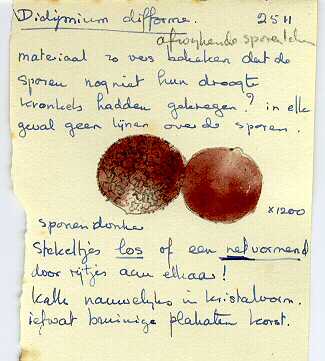 Didymium difforme. 2511
afwijkende sporen
materiaal zo vers bekeken dat de
sporen nog niet hun droogte
kronkels hadden gekregen? in elk
geval geen lijnen over de sporen.
x1200
sporen donker
Stekeltjes los of een netvormend
door rijtjes aan elkaar!
Kalk nauwelijks in kristalvorm.
iefwat bruinige plakaten korst.